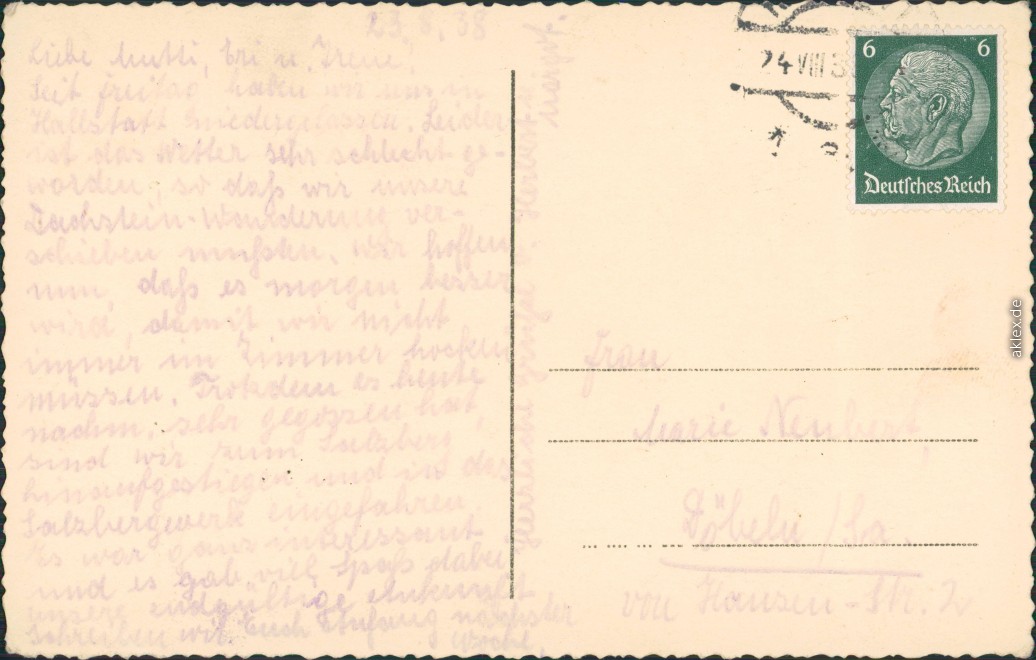 23.8.38
Liebe Mutti, Eri u. Irene.
Seit freitag haben wir uns in
Hallstatt niedergelassen. Leider
ist das Wetter sehr schlecht ge-
worden, so daß wir unsere
Dachstein-Wanderung ver-
schieben mußten. Wir hoffen
nun, daß es morgen besser
wird, damit wir nicht
immer im Zimmer hocken
müssen. Trotzdem es heute
nachm. sehr gegossen hat,
sind wir zum Salzberg
hinaufgestiegen und in das
Salzbergwerk eingefahren.
Es war ganz interessant
und es gab viel Spaß dabei.
unsere endgültige Ankunft
schreiben wir Euch Anfang nächster
Woche.
Herzliche Grüße u.
6 6
Deutsches Reich
24 VIII 3
Frau
Marie Neubert,
Döbeln /Sa.
von Hausen-Str. 2
aklex.de